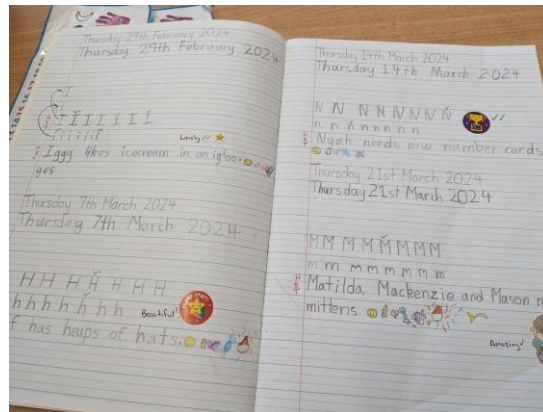 Thursday 29th February 2024
Thursday 29th February 2024
I
I I I I I I I
i i i i i i
Lovely
Iggy likes icecream in an igloo.
yes
Thursday 7th March 2024
Thursday 7th March 2024
H H H H H H H
h h h h h h h
Beautiful!
f has heaps of hats.
Thursday 14th March 2024
Thursday 14th March 2024
N N N N N N N N
n n n n n n n n
Nyah needs new number cards
Thursday 21st March 2024
Thursday 21st March 2024
M M M M M M M M
m m m m m m m m
Matilda, Mackenzie and Mason n
mittens.
Amazing